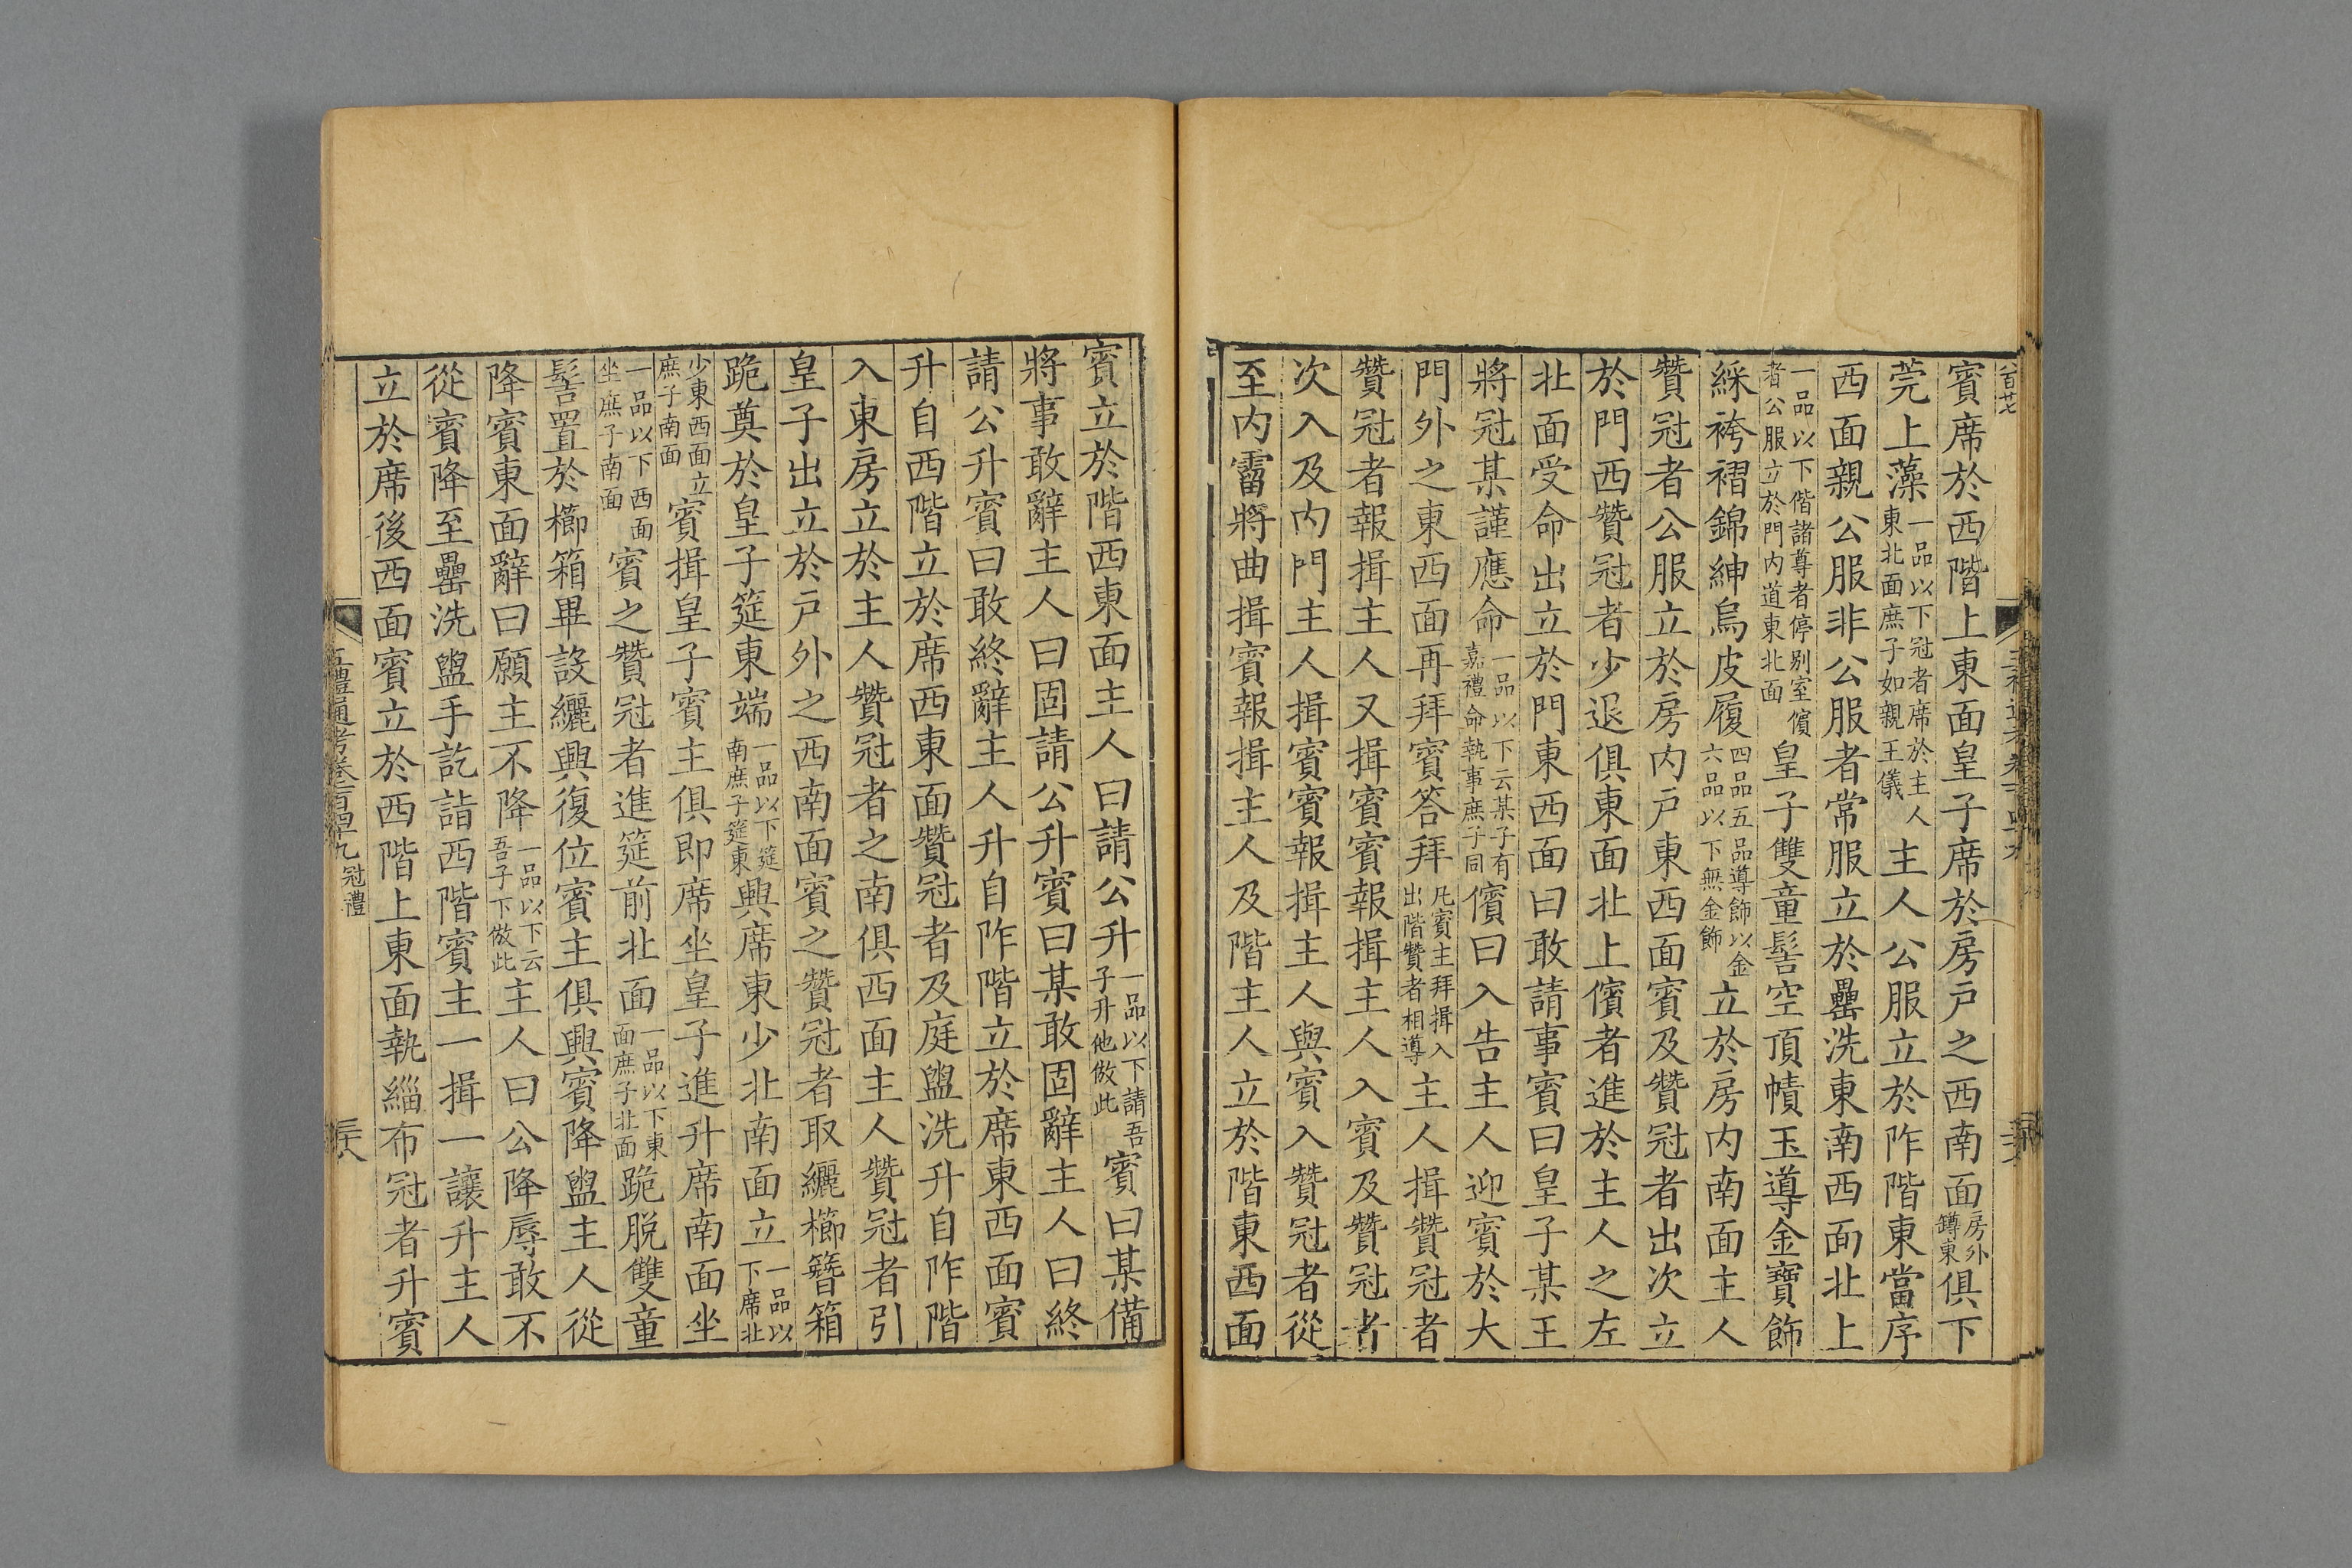 賓席於西階上東面皇子席於房戶之西南面房外罇東俱下
莞上藻一品以下冠者席於主人東北面庶子如親王儀主人公服立於阼階東當序
西面親公服非公服者常服立於罍洗東南西面北上
一品以下偕諸尊者停別室儐者公服立於門內道東北面皇子雙童髻空頂幘玉導金寶飾
綵袴褶錦紳烏皮履四品五品導飾以金六品以下無金飾立於房內南面主人
贊冠者公服立於房內戶東西面賓及贊冠者出次立
於門西贊冠者少退俱東面北上儐者進於主人之左
北面受命出立於門東西面曰敢請事賓曰皇子某王
將冠某謹應命一品以下云某子有嘉禮命執事庶子同儐曰入告主人迎賓於大
門外之東西面再拜賓答拜凡賓主拜揖入出階贊者相導主人揖贊冠者
贊冠者報揖主人又揖賓賓報揖主人入賓及贊冠者
次入及內門主人揖賓賓報揖主人與賓入贊冠者從
至內霤將曲揖賓報揖主人及階主人立於階東西面
賓立於階西東面主人曰請公升一品以下請吾子升他倣此賓曰某備
將事敢辭主人曰固請公升賓曰某敢固辭主人曰終
請公升賓曰敢終辭主人升自阼階立於席東西面賓
升自西階立於席西東面贊冠者及庭盥洗升自阼階
入東房立於主人贊冠者之南俱西面主人贊冠者引
皇子出立於戶外之西南面賓之贊冠者取纚櫛簪箱
跪奠於皇子筵東端一品以下筵南庶子筵東興席東少北南面立一品以下席北
少東西面立庶子南面賓揖皇子賓主俱即席坐皇子進升席南面坐
一品以下西面坐庶子南面賓之贊冠者進筵前北面一品以下東面庶子北面跪脫雙童
髻置於櫛箱畢設纚興復位賓主俱興賓降盥主人從
降賓東面辭曰願主不降一品以下云吾子下倣此主人曰公降辱敢不
從賓降至罍洗盥手訖詣西階賓主一揖一讓升主人
立於席後西面賓立於西階上東面執緇布冠者升賓
五禮通考卷一百四十九 冠禮